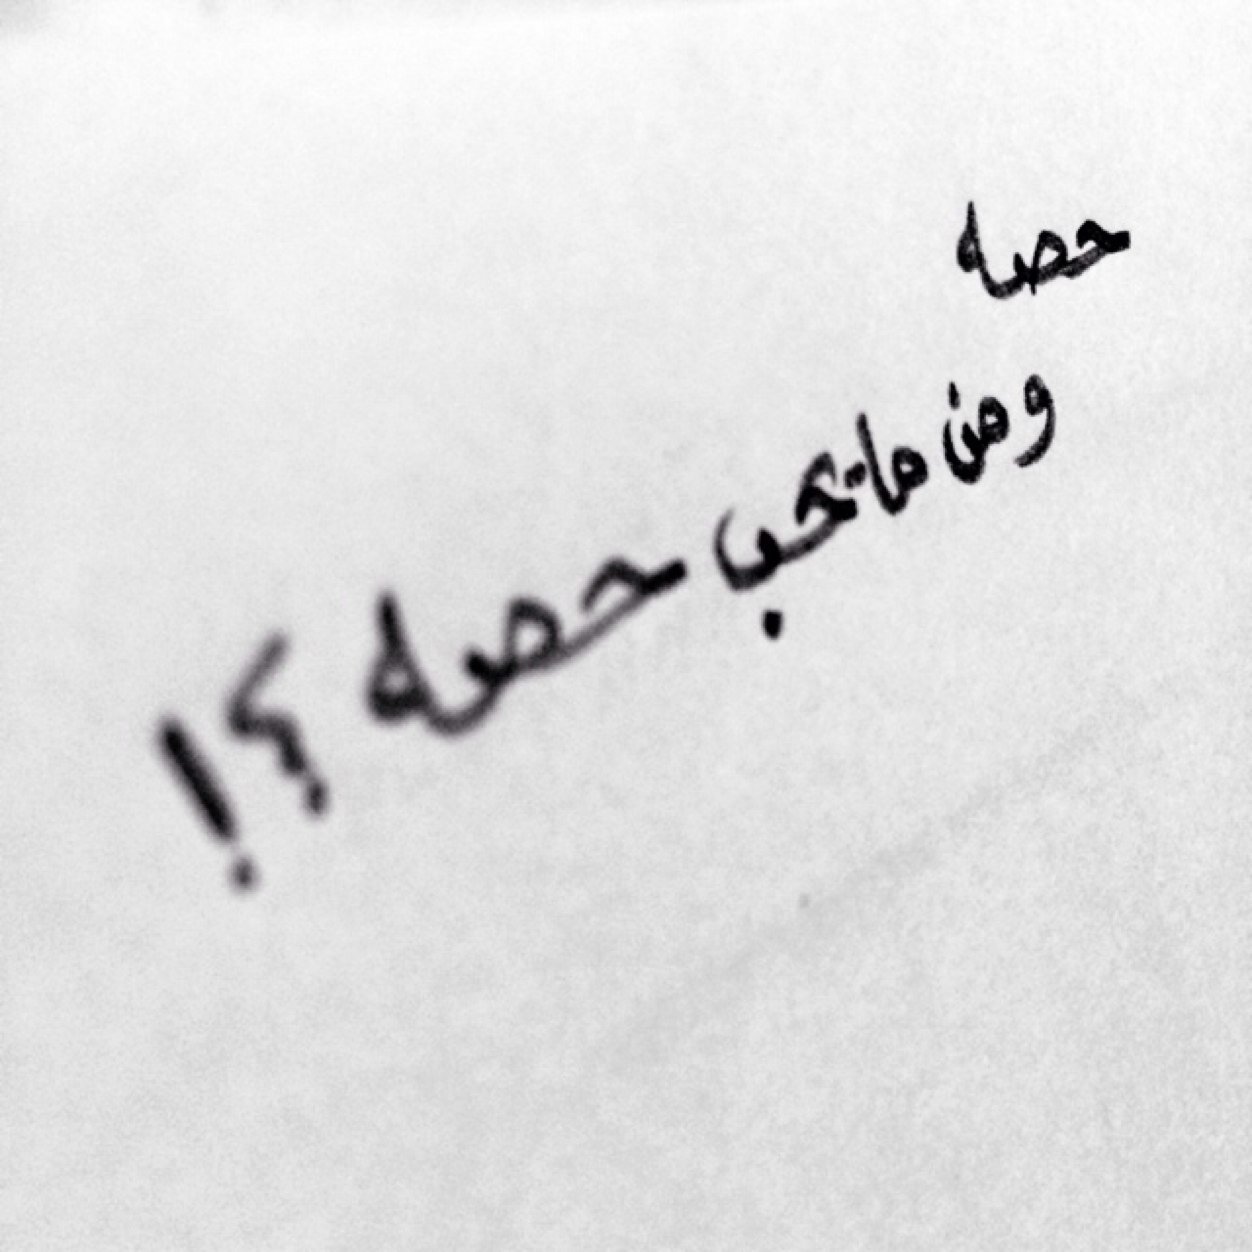 حصه
ومن ما تحب حصه ؟!